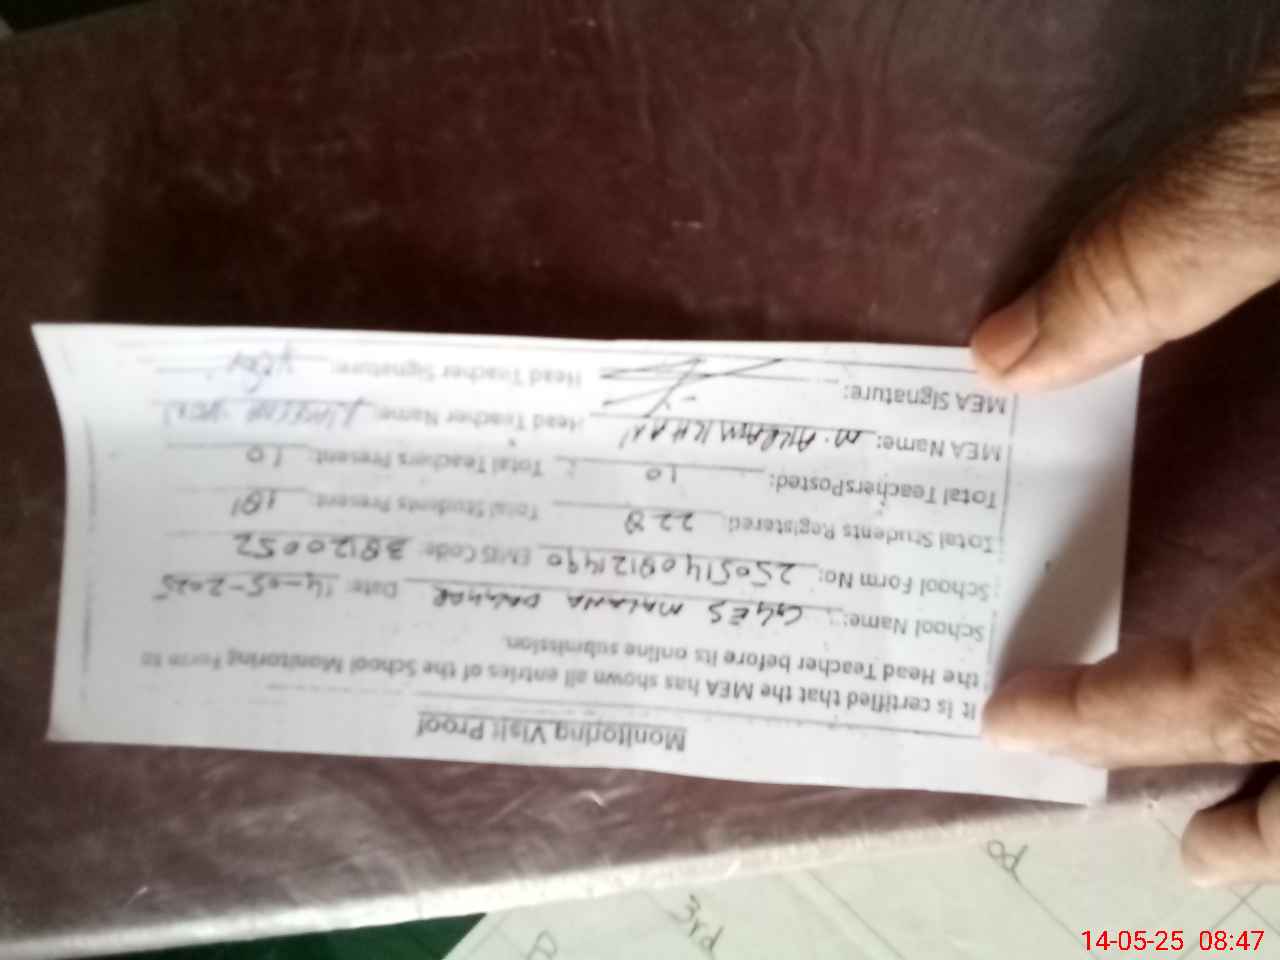 Monitoring Visit Proof
It is certified that the MEA has shown all entries of the School Monitoring Form to
the Head Teacher before its online submission.
School Name: GGES MALANA Date: 14-05-2025
School Form No: 25051408121490 EMIS Code: 38120052
Total Students Registered: 228 Total Students Present: 181
Total TeachersPosted: 10 Total Teachers Present: 10
MEA Name: M. AKRAM KHAN Head Teacher Name:
MEA Signature: Head Teacher Signature:
3rd
14-05-25 08:47